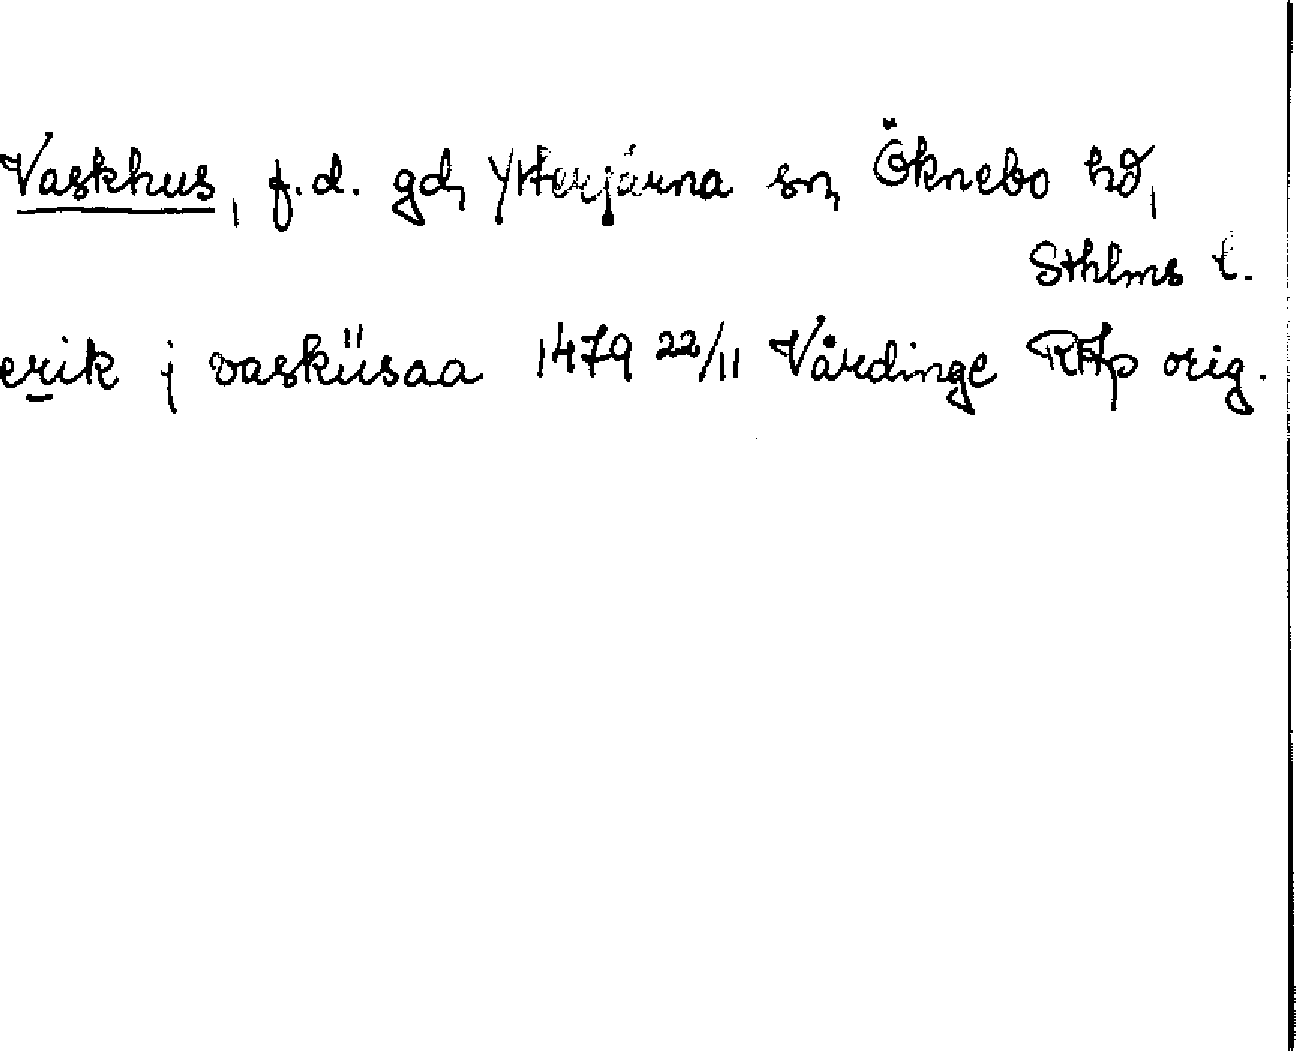 Vaskhus, f.d. gd, Ytterjärna sn, Öknebo hd,
Sthlms l.
erik j vaskűsaa 1479 22/11 Vårdinge RAp orig.